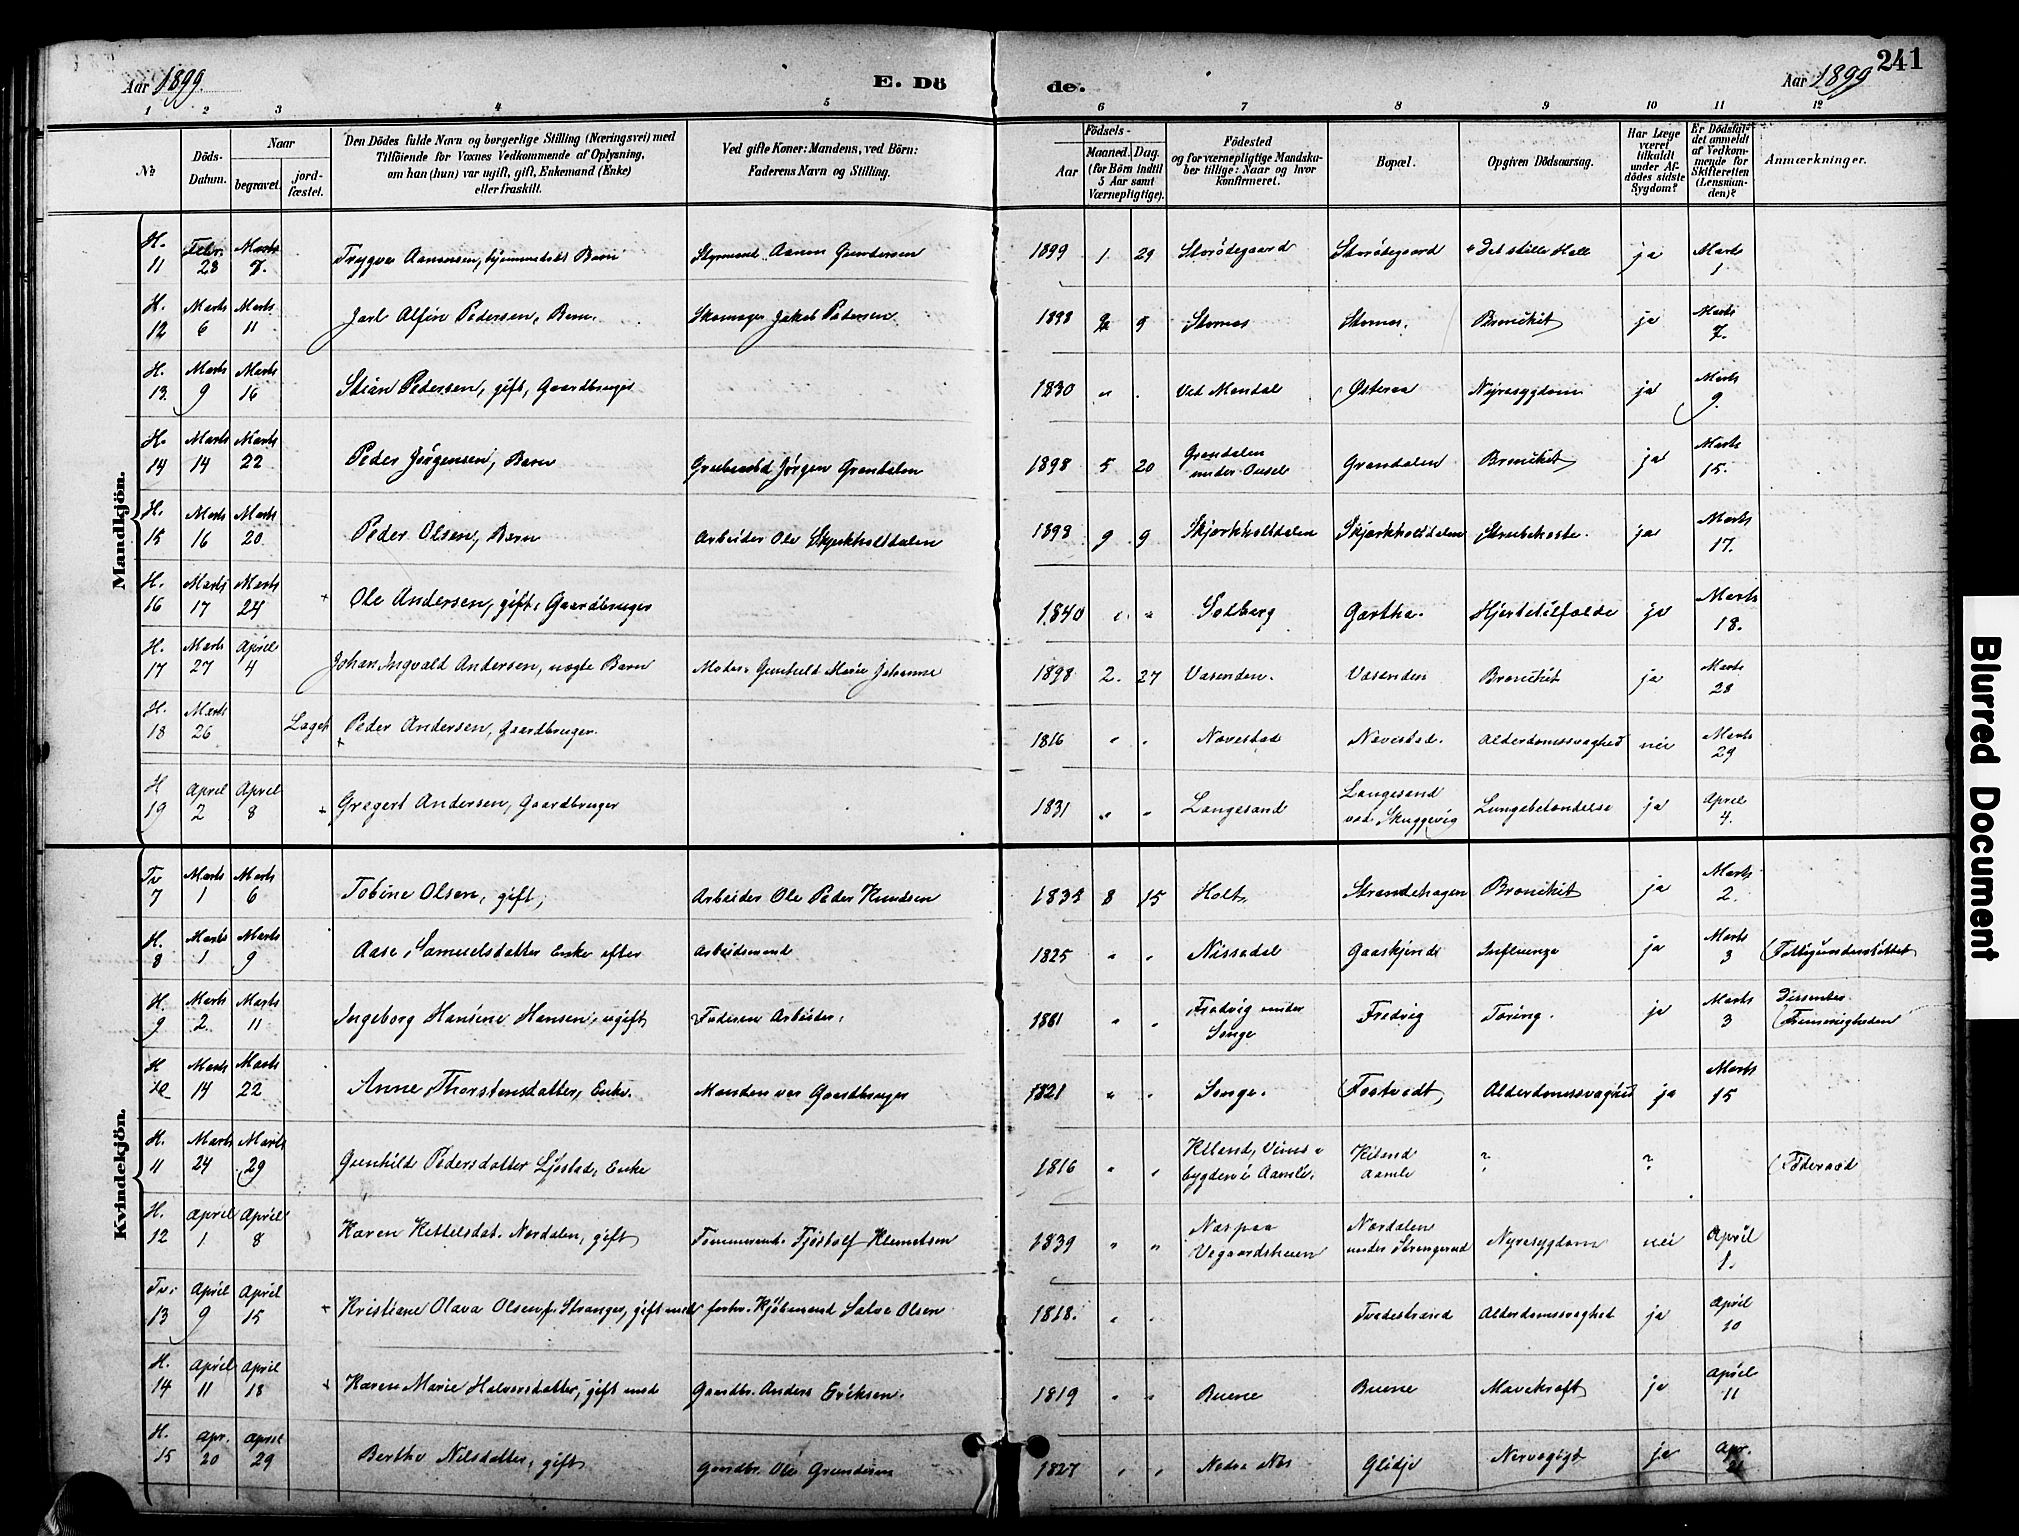 241
Aar 1899.
E. Dö
de.
Aar 1899
1 2 3 4 5 6 7 8 9 10 11 12
No
Döds-Datum.
Naar
begravet.
jord-fæstet.
Den Dödes fulde Navn og borgerlige Stilling (Næringsvei) med
Tilföiende for Voxnes Vedkommende af Oplysning,
om han (hun) var ugift, gift, Enkemand (Enke)
eller fraskilt.
Ved gifte Koner: Mandens, ved Börn:
Faderens Navn og Stilling.
Födsels-
Aar
Maaned. Dag.
(for Börn indtil
5 Aar samt
Værnepligtige).
Födested
og for værnepligtige Mandska-
ber tillige: Naar og hvor
konfirmeret.
Bopæl.
Opgiven Dödsaarsag.
Har Læge
været
tilkaldt
under Af-
dödes sidste
Sygdom?
Er Dödsfal-
det anmeldt
af Vedkom-
mende for
Skifteretten
(Lensman-
den)?
Anmærkninger.
Mandkjön.
H. 11 Febr. 28 Marts 7. Trygve Aanensen, hjemmedöbt Barn Styrmand Aanen Gundersen 1899 1 29 Storödegaard Storödegaard "Det stille Hall ja Marts 1
H. 12 Marts 6 Marts 11 Jarl Alfin Pedersen, Barn. Skomager Jakob Pedersen 1898 9 Stornes Stornes. Bronikit ja Marts 7.
H. 13. Marts 9 Marts 16 Stian Pedersen, gift, Gaardbruger 1830 " . Ved Mandal Østeraa Nyresygdom ja Marts 9.
H. 14 Marts 14 Marts 22 Peder Jørgensen, Barn Grubearbd Jørgen Grendalen 1898 5 20 Grendalen under Ousel Grendalen Bronikit ja Marts 15.
H. 15 Marts 16 Marts 20 Peder Olsen, Barn Arbeider Ole Skjerkholtdalen 1898 9 9 Skjærkholtdalen Skjærkholtdalen Strubehoste. ja Marts 17.
H. 16 Marts 17 Marts 24 + Ole Andersen, gift, Gaardbruger 1840 " " Solberg Gartha. Hjertetilfælde ja Marts 18.
H. 17 Marts 27 April 4 Johan Ingvald Andersen, uægte Barn Moder: Gunhild Marie Johanne 1898 2. 27 Vasenden. Vasenden Bronikit ja Marts 28
H. 18 Marts 26 Laget + Peder Andersen, Gaardbruger. 1816 " " Navestad Navestad. Alderdomssvaghed nei Marts 29
H 19 April 2 April 8 + Gregert Andersen, Gaardbruger 1831 " " Langesand Langesand ved Skuggevig Lungebetændelse ja April 4.
Kvindekjön.
Tv 7 Marts 1 Marts 6 Tobine Olsen, gift, Arbeider Ole Peder Knudsen 1834 8 15 Holt, Strandehagen Bronikit ja Marts 2.
H. 8 Marts 1 Marts 9 Aase Samuelsdatter Enke efter Arbeidsmand 1825 " " Nissedal Gaaskjend Influenza ja Marts 3 Fattigunderstöttet
H. 9 Marts 2. Marts 11 Ingeborg Hansine Hansen, ugift Faderen Arbeider. 1881 " " Fredvig under Songe Fredvig Tæring. ja Marts 3 Dissenter. Frimenigheden
H Marts 14 Marts 22 Anne Thorstensdatter, Enke. Manden var Gaardbruger 1821 " " Songe. Fostvedt Alderdomssvaghed ja Marts 15
H. 11 Marts 24 Marts 29 Gunhild Pedersdatter Ljøstad, Enke 1816 " " Kiland, bygden i Aamli. Kiland Aamli ? ? Föderaad
H. 12 April 1 April 8 Karen Kittelsdat. Nordalen, gift Tømmermd. Fjöstolf Klemetsen 1839 " " Næs paa Vegaardsheien Nordalen under Strengereid Nyresygdom nei April 1.
Tv. 13 April 9 April 15 + Kristiane Olava Olsen f. Stranger, gift med forhv. Kjöbmand Salve Olsen 1818. " " Tvedestrand Alderdomssvaghed ja April 10
H. 14 April 11 April 18 + Karen Marie Halvorsdatter, gift med Gaardbr. Anders Eriksen. 1819 " " Buene Buene Mavekraft ja April 11
H. 15 Apr. 20 April 29 Berthe Nilsdatter, gift Gaardbr. Ole Gundersen 1827 " " Nedre Næs Glidje Nervegigt ja Apr. 21
Blurred Document